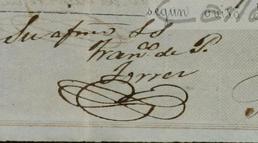 segun
Su afmo SS
Franco de P.
Torres